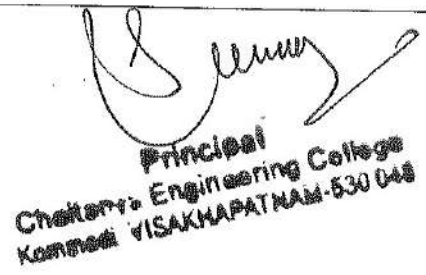 Principal
Chaitanya Engineering College
Kommadi VISAKHAPATNAM-530 048